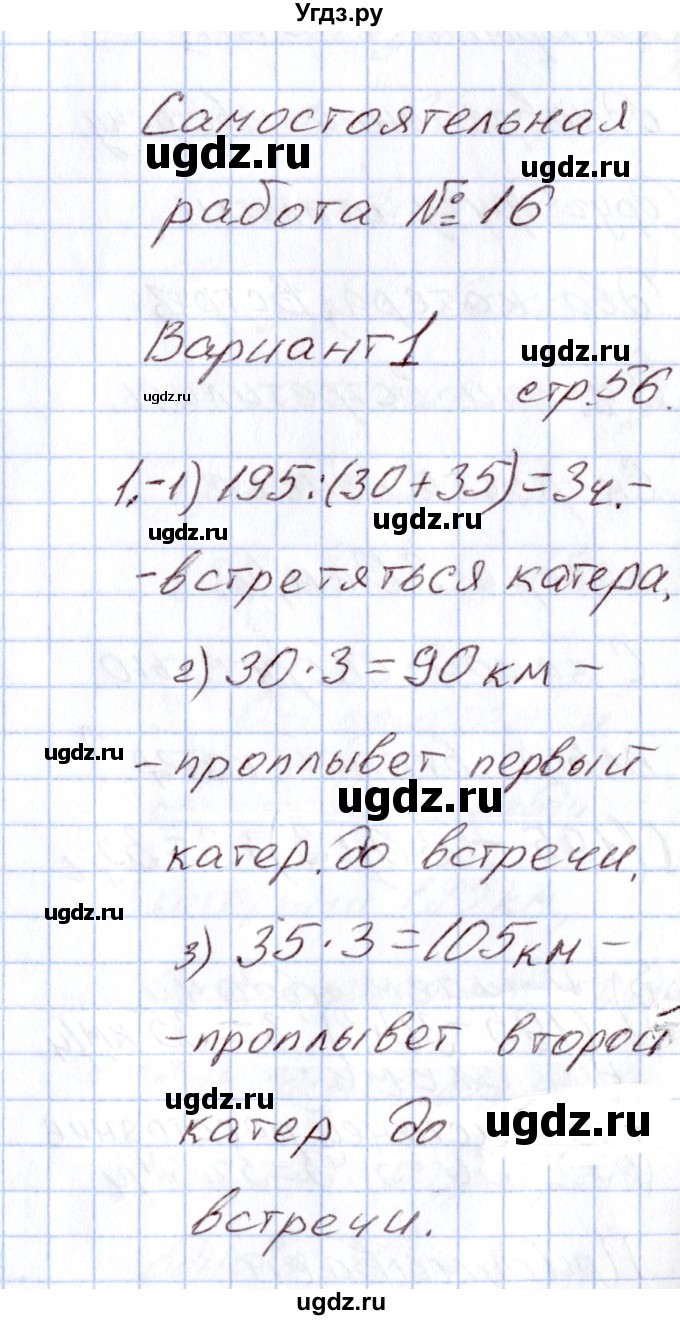 Угдз.ру
Самостоятельная
ugdz.ru
ugdz.ru
работа № 16
Вариант 1
ugdz.ru
ugdz.ru
стр.56.
1.-1) 195:(30+35)=3ч.-
ugdz.ru
ugdz.ru
-встретяться катера.
2) 30·3=90 км -
ugdz.ru
-проплывет первый
ugdz.ru
катер. до встречи.
ugdz.ru
3) 35·3=105 км -
-проплывет второй
ugdz.ru
катер до
ugdz.ru
встречи.
ugdz.ru